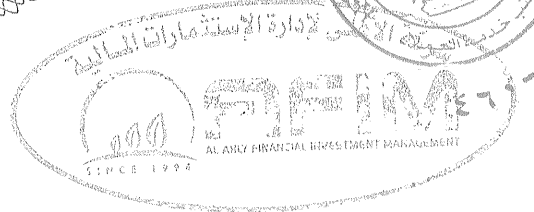 الأهلي لإدارة الإستثمارات المالية
خدمة العملاء
aFIM
AL AHLY FINANCIAL INVESTMENT MANAGEMENT
SINCE 1994